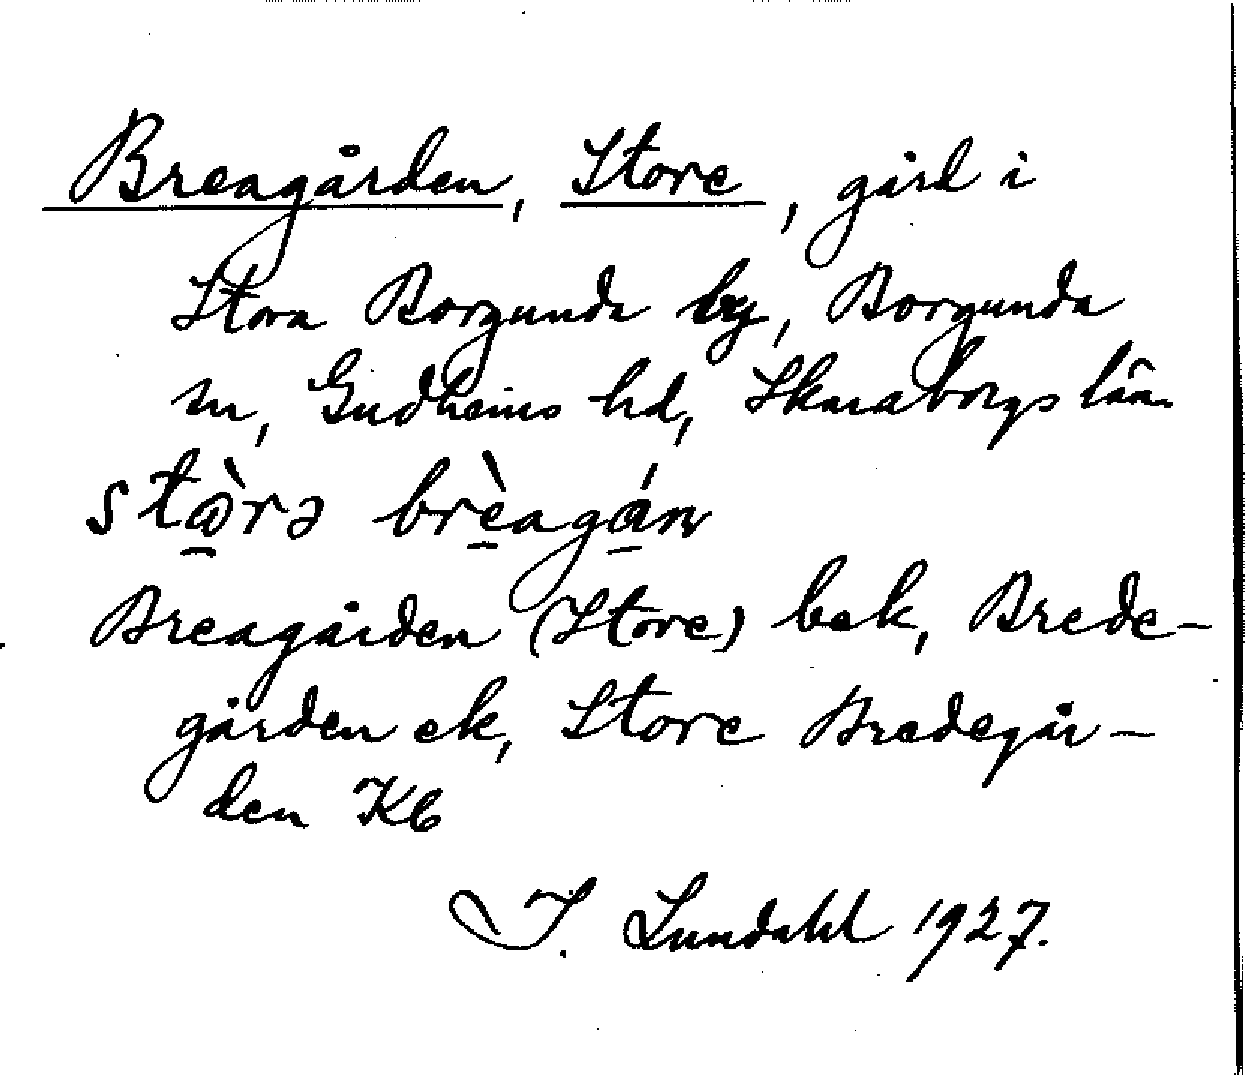 Breagården, Store, gård i
Stora Borgunda by, Borgunda
sn, Gudhems hd, Skaraborgs län.
stɷ̀rə brèagán
Breagården (Store) bek, Brede-
gården ek, Store Bredegår-
den Kb
I. Lundahl 1927.